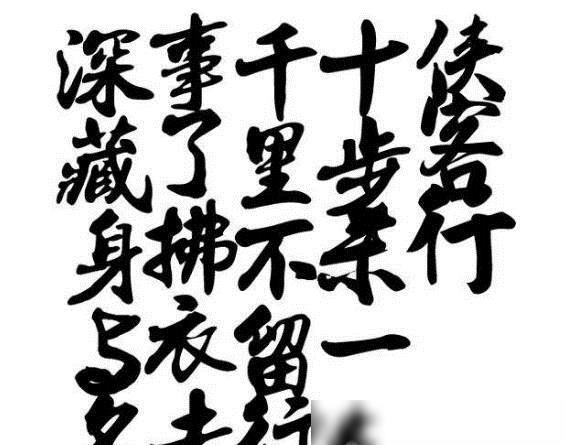 侠客行
十步杀一
千里不留行
事了拂衣去
深藏身与名